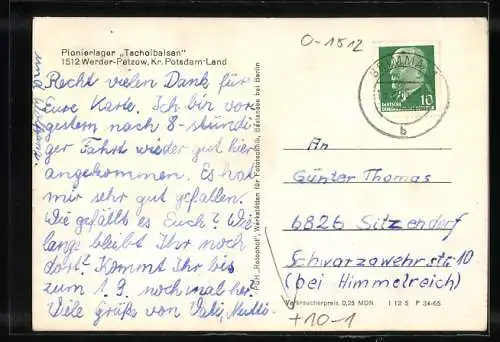 O-1512
Pionierlager „Tschoibalsan"
1512 Werder-Petzow, Kr. Potsdam-Land
Recht vielen Dank für
Eure Karte. Ich bin vor
gestern nach 8-stündi
ger Fahrt wieder gut hier
angekommen. Es hat
mir sehr gut gefallen.
Wie gefällt es Euch? Wie
lange bleibt Ihr noch
dort? Kommt Ihr bis
zum 1.9. nochmal her?
Viele Grüße von Vati, Mutti
und
PGH „Rotophot", Werkstätten für Fototechnik, Bestensee bei Berlin
DEUTSCHE
10
b
An
Günter Thomas
6826 Sitzendorf
Schwarzawehrstr. 10
(bei Himmelreich)
Verbraucherpreis 0,25 MDN I 12 5 P 34-65
+10-1